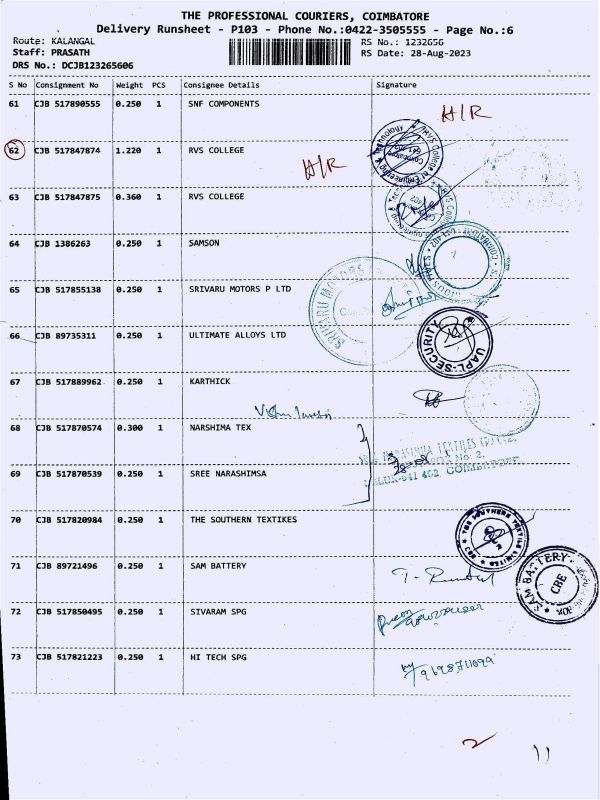 THE PROFESSIONAL COURIERS, COIMBATORE
Delivery Runsheet - P103 - Phone No.:0422-3505555 - Page No.:6
Route: KALANGAL
RS No.: 1232656
Staff: PRASATH
RS Date: 28-Aug-2023
DRS No.: DCJB123265606
S No Consignment No Weight PCS Consignee Details Signature
61 CJB 517890555 0.250 1 SNF COMPONENTS
H/R
62 CJB 517847874 1.220 1 RVS COLLEGE
H/R
63 CJB 517847875 0.360 1 RVS COLLEGE
64 CJB 1386263 0.250 1 SAMSON
65 CJB 517855138 0.250 1 SRIVARU MOTORS P LTD
SRIVARU MOTORS
66 CJB 89735311 0.250 1 ULTIMATE ALLOYS LTD
UAPL-SECURITY
67 CJB 517889962 0.250 1 KARTHICK
68 CJB 517870574 0.300 1 NARSHIMA TEX
69 CJB 517870539 0.250 1 SREE NARASHIMSA
70 CJB 517820984 0.250 1 THE SOUTHERN TEXTIKES
71 CJB 89721496 0.250 1 SAM BATTERY
SAM BATTERY
CBE
72 CJB 517850495 0.250 1 SIVARAM SPG
73 CJB 517821223 0.250 1 HI TECH SPG
2
11